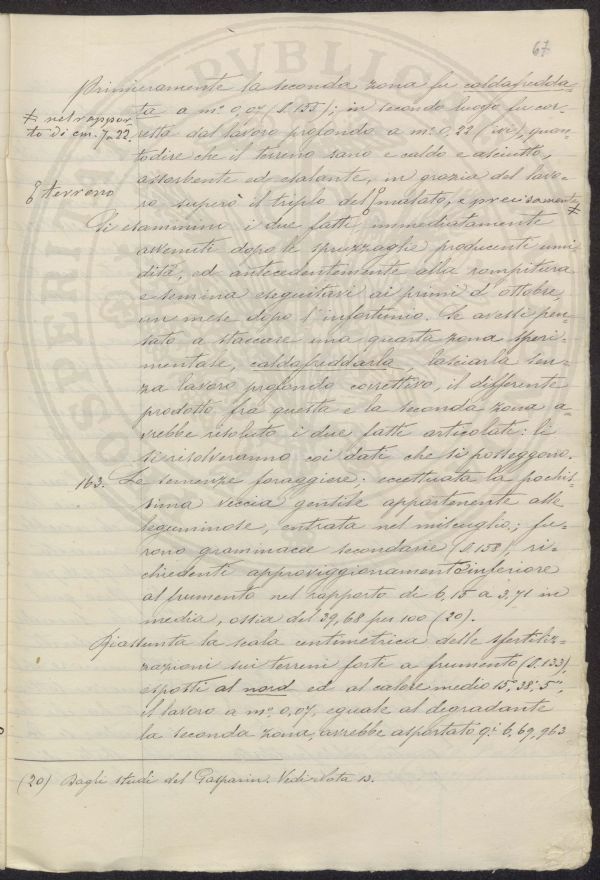 67
Primieramente la seconda zona fu caldafredda-
ta a m.º 0,07 (S. 155); in secondo luogo fu cor-
≠ nel rappor-
to di cm. 7 a 22.
retta dal lavoro profondo a m.º 0,22 (ivi), quan-
todire che il terreno sano e caldo e asciutto,
assorbente ed esalante, in grazia del lavo-
terreno
ro superò il triplo del malato, e precisamente ≠
Si esaminini i due fatti, immediatamente
avvenuti dopo le spruzzaglie producenti umi-
dità, ed antecedentemente alla rompitura
e semina eseguitasi ai primi d'ottobre,
un mese dopo l'infortunio. Se avessi pen-
sato a staccare una quarta zona speri-
mentale, caldafreddarla lasciarla sen-
za lavoro profondo correttivo, il differente
prodotto fra questa e la seconda zona a-
vrebbe risoluto i due fatti articolati: li
si risolveranno coi dati che si posseggono.
163. Le semenze foraggiere; eccettuata la pochis-
sima veccia gentile appartenente alle
leguminose, entrata nel miscuglio; fu-
rono graminacee secondarie (S. 158), ri-
chiedenti approviggionamento inferiore
al frumento nel rapporto di 6,15 a 3,71 in
media, ossia del 39,68 per 100 (20).
Riassunta la scala centimetrica delle sfertiliz-
zazioni sui terreni forti a frumento (S. 133),
esposti al nord ed al calore medio 15º, 38', 5'',
il lavoro a m.º 0,07, eguale al degradante
la seconda zona, avrebbe asportato q.i 6,69,963
(20) Dagli studi del Gasparin. Vedi Nota 13.